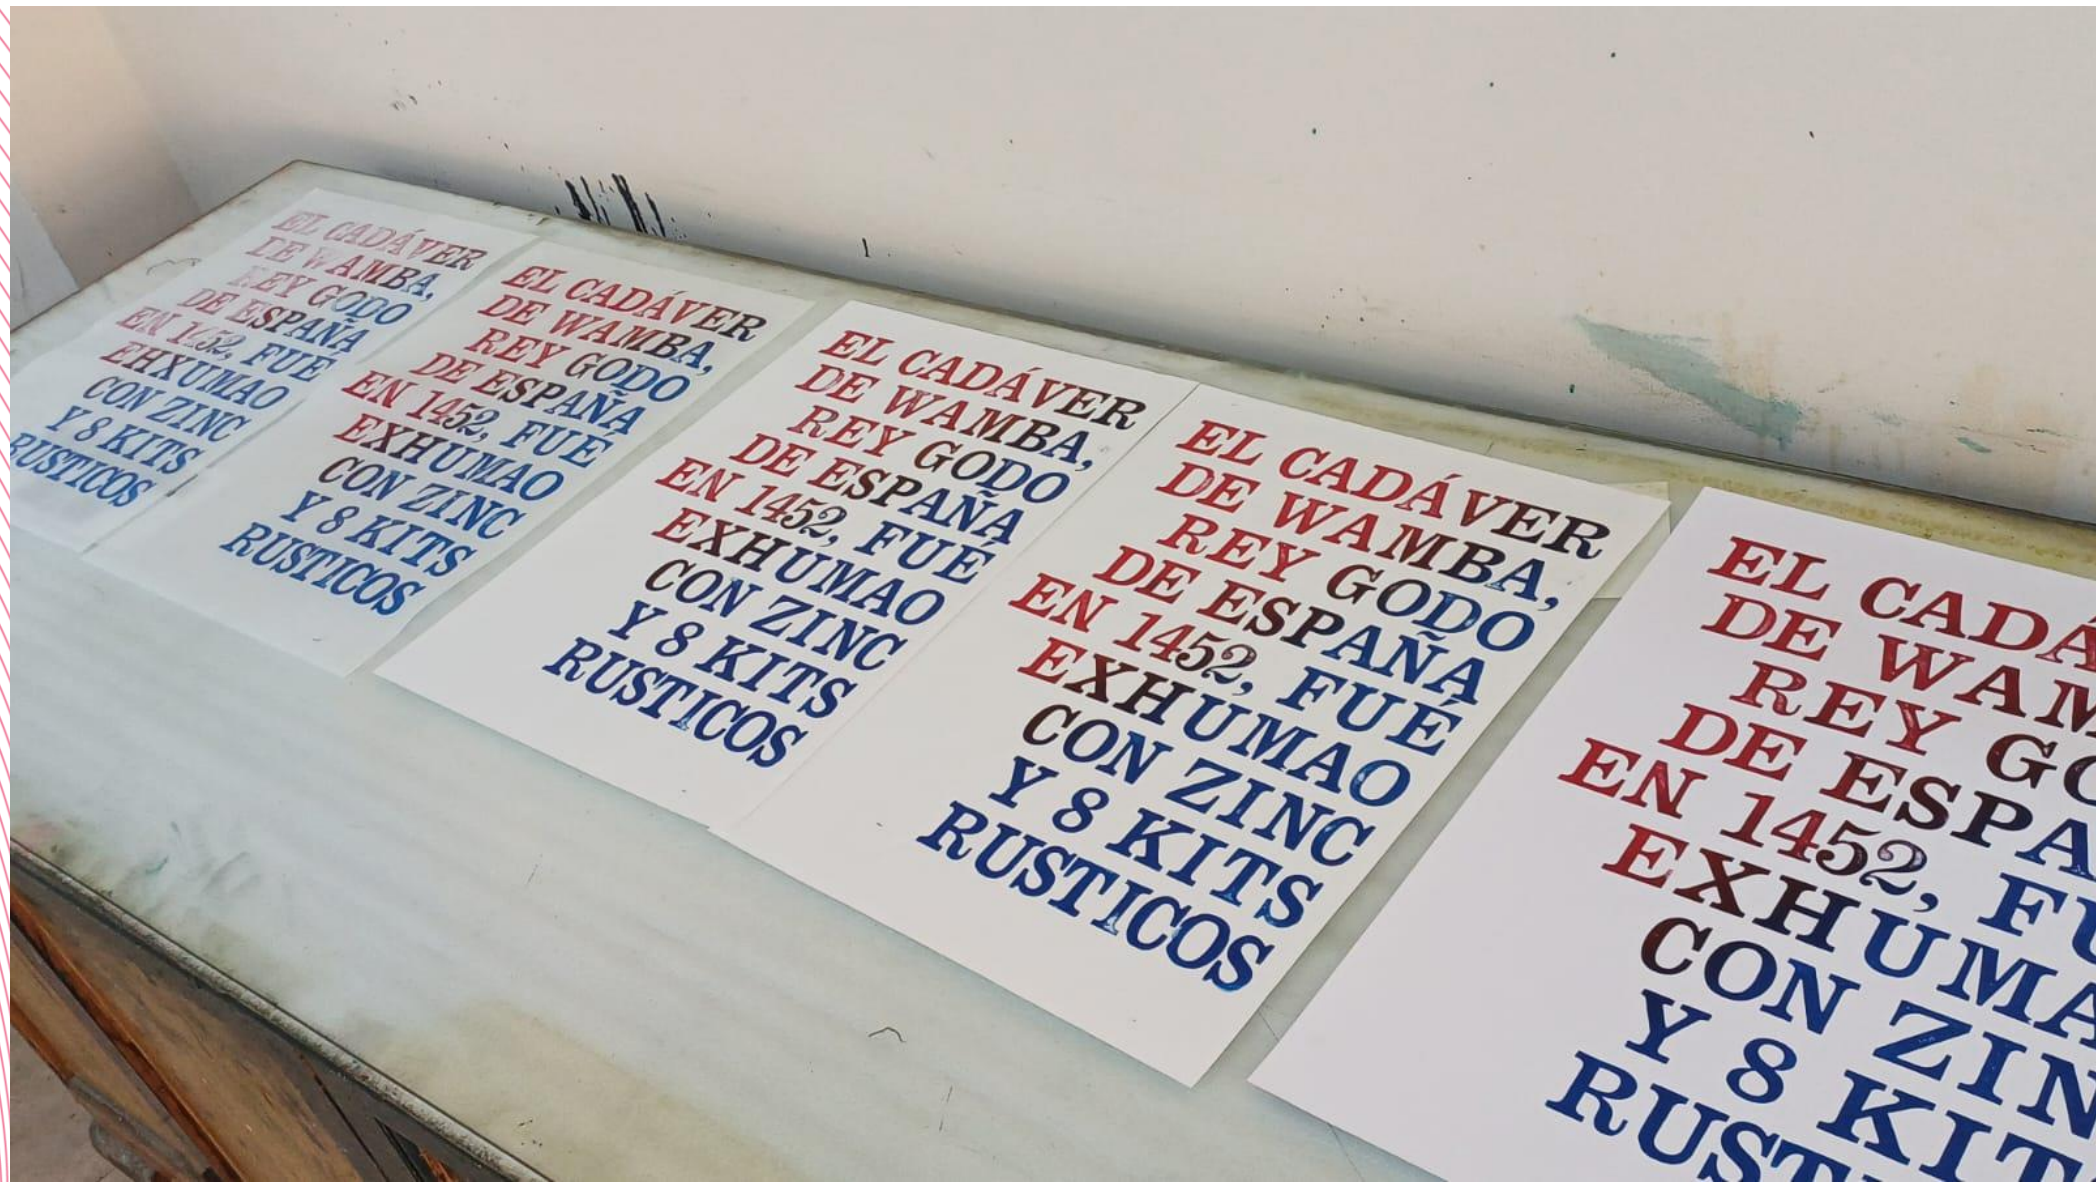 EL CADÁVER
DE WAMBA,
REY GODO
DE ESPAÑA
EN 1452, FUÉ
EHXUMAO
CON ZINC
Y 8 KITS
RUSTICOS
EL CADÁVER
DE WAMBA,
REY GODO
DE ESPAÑA
EN 1452, FUÉ
EXHUMAO
CON ZINC
Y 8 KITS
RUSTICOS
EL CADÁVER
DE WAMBA,
REY GODO
DE ESPAÑA
EN 1452, FUÉ
EXHUMAO
CON ZINC
Y 8 KITS
RUSTICOS
EL CADÁVER
DE WAMBA,
REY GODO
DE ESPAÑA
EN 1452, FUÉ
EXHUMAO
CON ZINC
Y 8 KITS
RUSTICOS
EL CADÁ
DE WAM
REY GO
DE ESPA
EN 1452, FU
EXHUMA
CON ZIN
Y 8 KIT
RUSTI